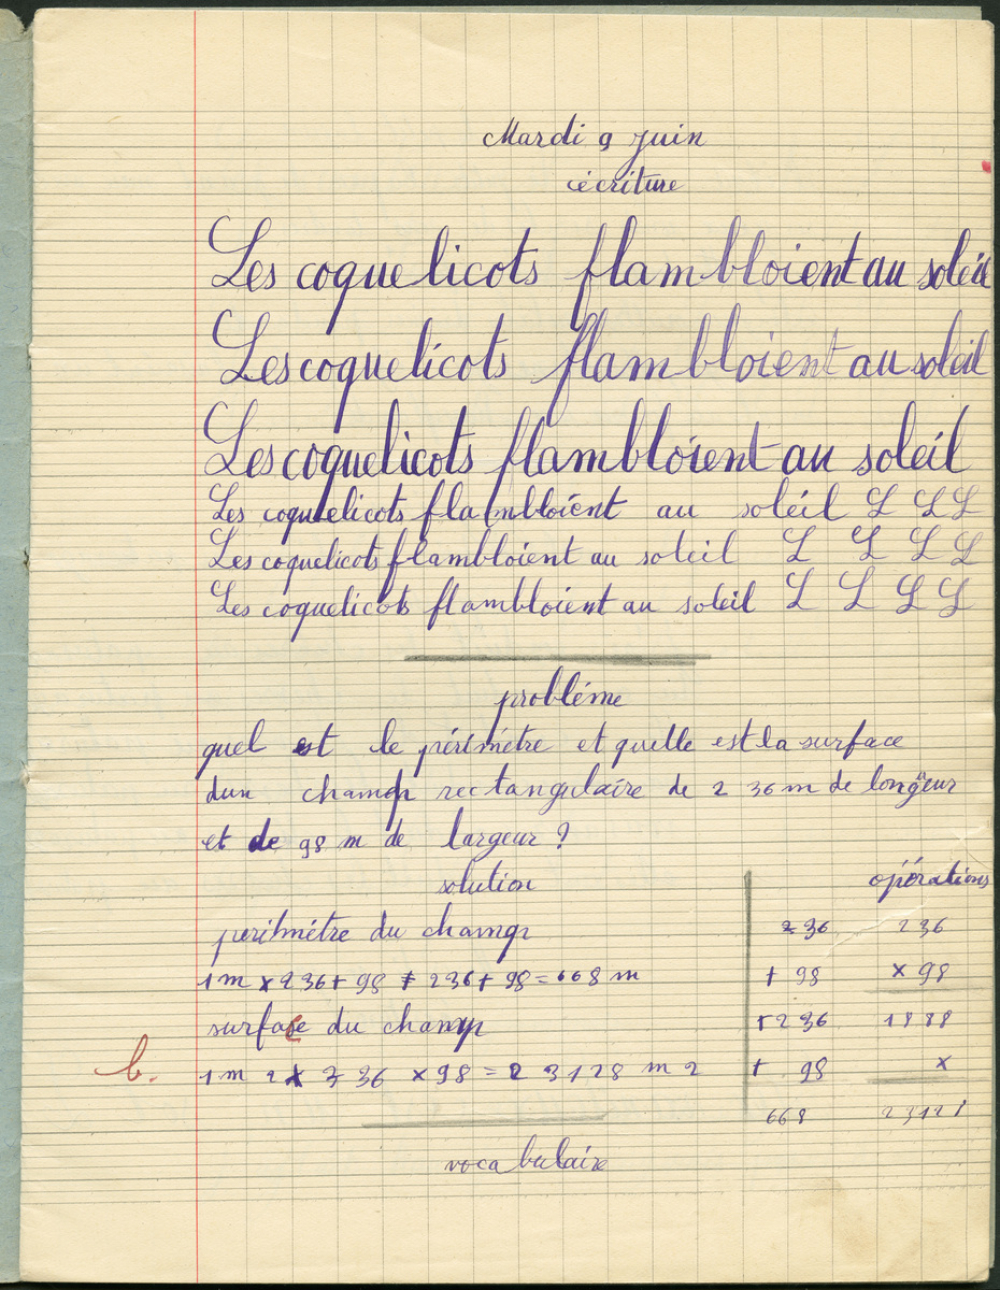 Mardi 9 juin
écriture
Les coquelicots flambloient au soleil
Les coquelicots flambloient au soleil
Les coquelicots flambloient au soleil
Les coquelicots flambloient au soleil L L L
Les coquelicots flambloient au soleil L L L L
Les coquelicots flambloient au soleil L L L L
probléme
quel est le périmétre et quelle est la surface
dun champ rectangulaire de 236m de longueur
et de 98 m de largeur ?
solution opérations
perihmétre du champ 236 236
1m x 236 + 98 + 236 + 98 = 668 m + 98 x 98
surface du champ + 236 1888
b. 1m2 x 236 x 98 = 23128 m2 + 98 x
668 23128
vocabulaire